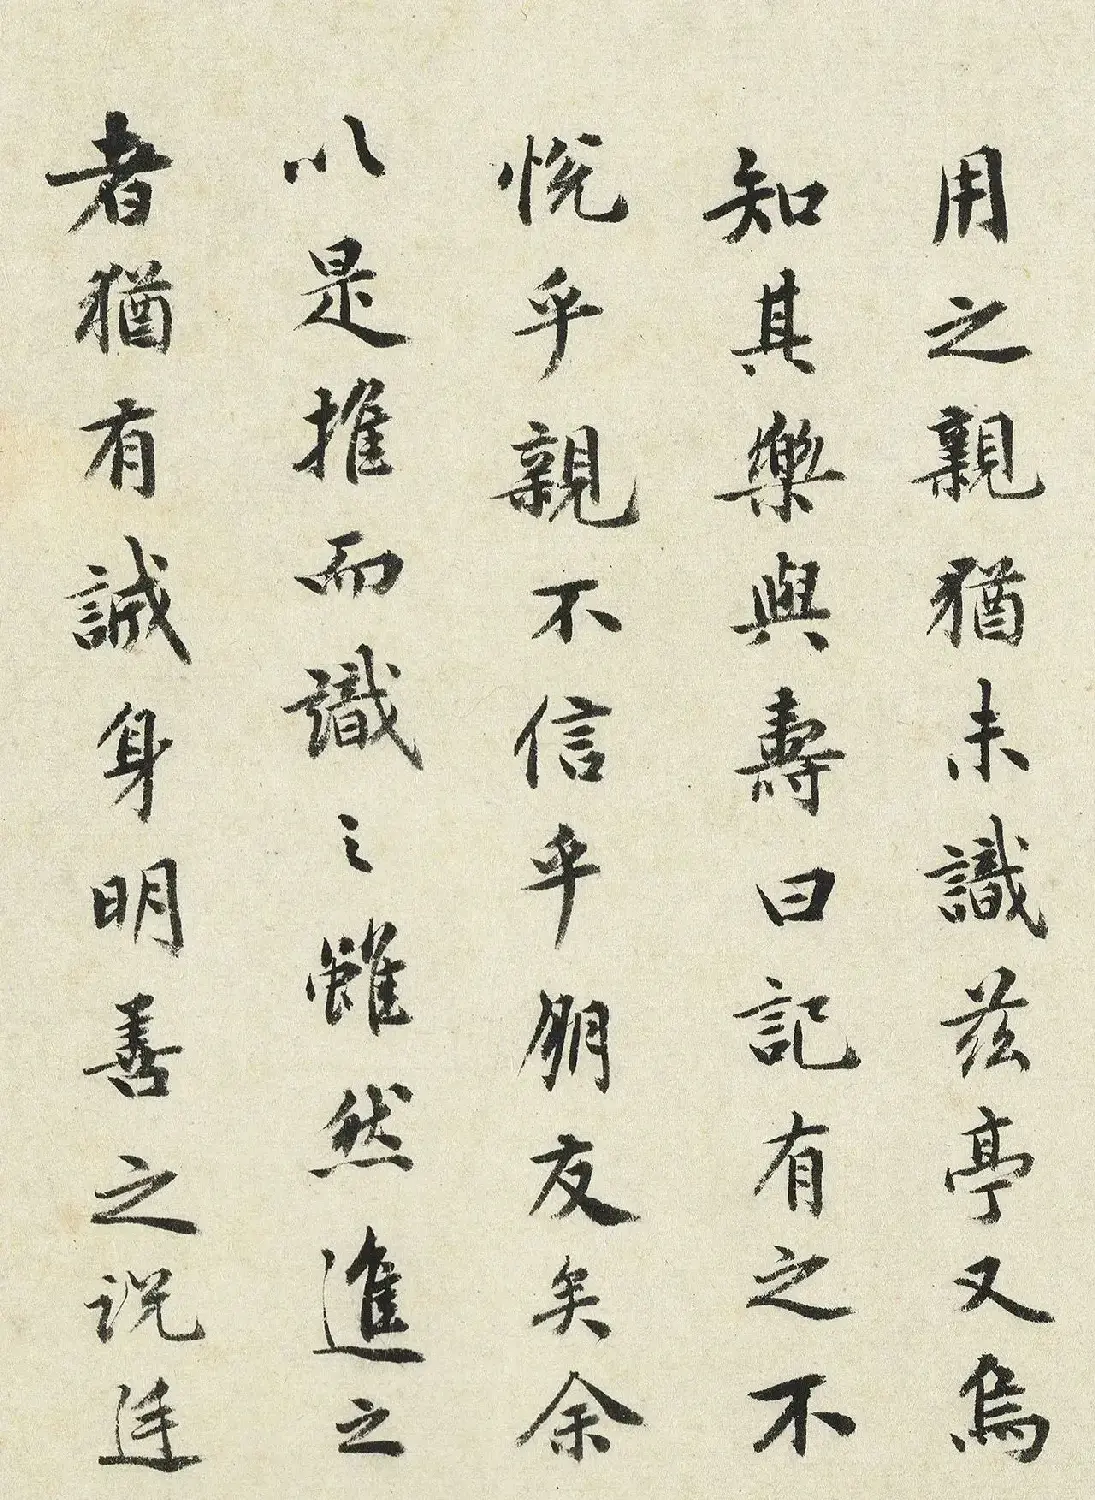 用之親猶未識茲亭又烏
知其樂與壽曰記有之不
悅乎親不信乎朋友矣余
以是推而識之雖然進之
者猶有誠身明善之说廷